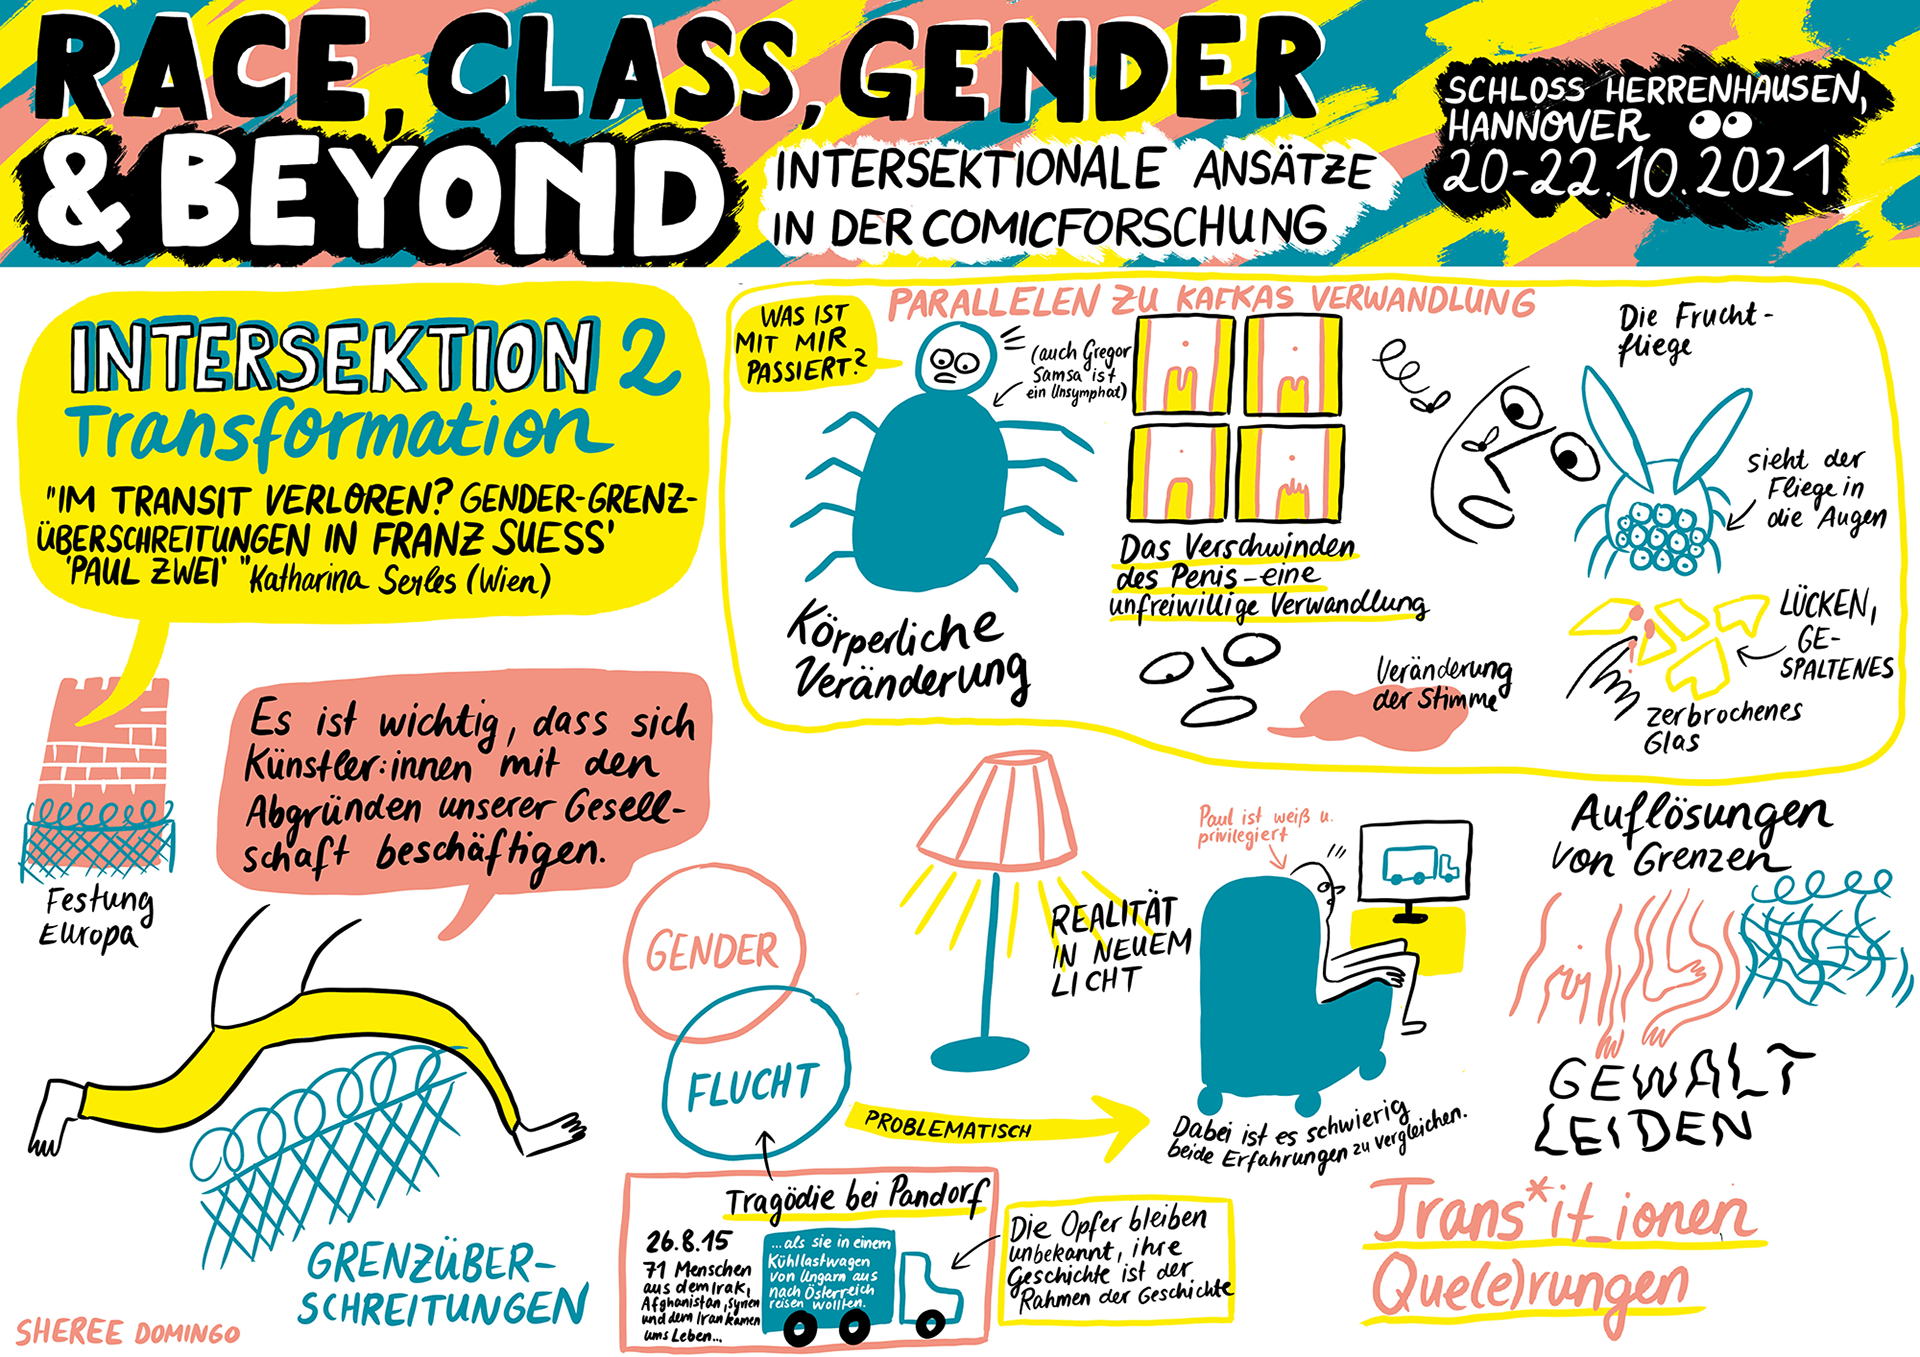 RACE, CLASS, GENDER
& BEYOND
INTERSEKTIONALE ANSÄTZE
IN DER COMICFORSCHUNG
SCHLOSS HERRENHAUSEN,
HANNOVER
20-22.10.2021
INTERSEKTION 2
Transformation
"IM TRANSIT VERLOREN? GENDER-GRENZ-
ÜBERSCHREITUNGEN IN FRANZ SUESS'
'PAUL ZWEI'" Katharina Serles (Wien)
Festung
Europa
Es ist wichtig, dass sich
Künstler:innen mit den
Abgründen unserer Gesell-
schaft beschäftigen.
GRENZÜBER-
SCHREITUNGEN
SHEREE DOMINGO
PARALLELEN ZU KAFKAS VERWANDLUNG
WAS IST
MIT MIR
PASSIERT?
(auch Gregor
Samsa ist
ein Unsymphat)
Körperliche
Veränderung
Das Verschwinden
des Penis - eine
unfreiwillige Verwandlung
Veränderung
der Stimme
Die Frucht-
fliege
sieht der
Fliege in
die Augen
LÜCKEN,
GE-
SPALTENES
zerbrochenes
Glas
GENDER
FLUCHT
REALITÄT
IN NEUEM
LICHT
Paul ist weiß u.
privilegiert
PROBLEMATISCH
Dabei ist es schwierig
beide Erfahrungen zu vergleichen.
Tragödie bei Pandorf
26.8.15
71 Menschen
aus dem Irak,
Afghanistan, Syrien
und dem Iran kamen
ums Leben...
...als sie in einem
Kühllastwagen
von Ungarn aus
nach Österreich
reisen wollten.
Die Opfer bleiben
unbekannt, ihre
Geschichte ist der
Rahmen der Geschichte
Auflösungen
von Grenzen
GEWALT
LEIDEN
Trans*it_ionen
Que(e)rungen